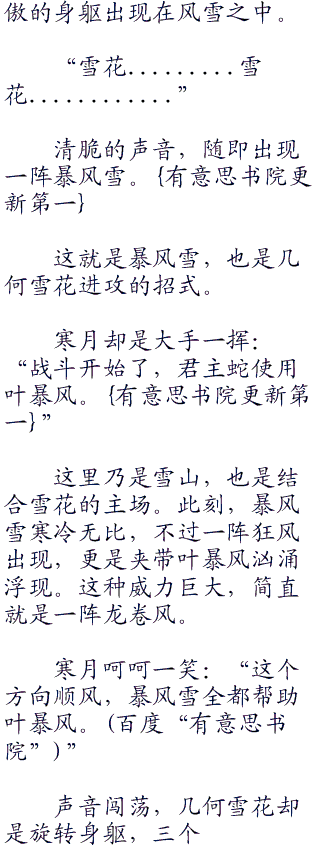 傲的身躯出现在风雪之中。
“雪花.........雪
花............”
清脆的声音，随即出现
一阵暴风雪。{有意思书院更
新第一}
这就是暴风雪，也是几
何雪花进攻的招式。
寒月却是大手一挥：
“战斗开始了，君主蛇使用
叶暴风。{有意思书院更新第
一}”
这里乃是雪山，也是结
合雪花的主场。此刻，暴风
雪寒冷无比，不过一阵狂风
出现，更是夹带叶暴风汹涌
浮现。这种威力巨大，简直
就是一阵龙卷风。
寒月呵呵一笑：“这个
方向顺风，暴风雪全都帮助
叶暴风。(百度“有意思书
院”)”
声音闯荡，几何雪花却
是旋转身躯，三个